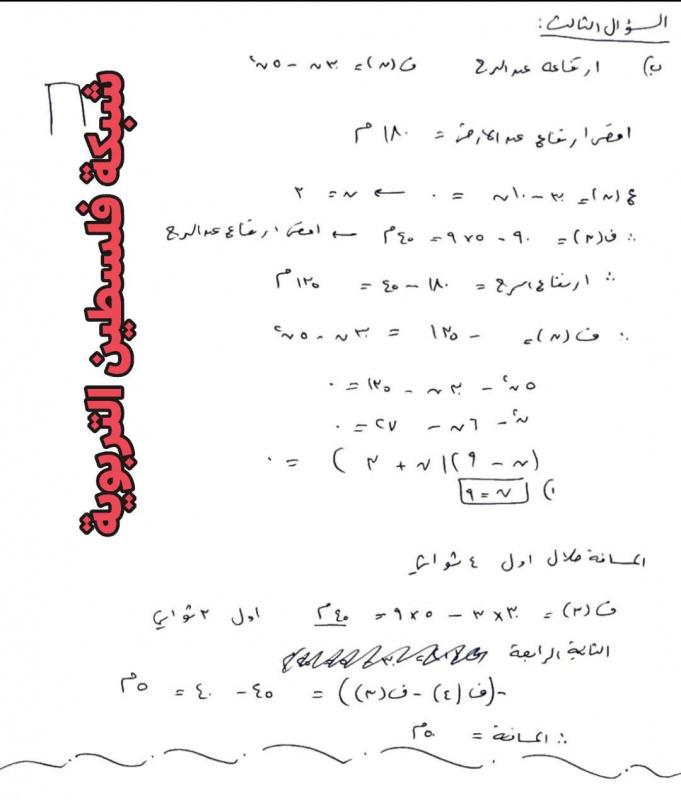 السؤال الثالث:
ب) ارتفاعه عند البرج ف(ن)= ٣٠ن - ٥ن²
اقصى ارتفاع عند الأرض = ١٨٠ م
ع(ن)= ٣٠ - ١٠ن = ٠ ← ن = ٣
∴ ف(٣)= ٩٠ - ٥×٩ = ٤٥م ← اقصى ارتفاع عند البرج
∴ ارتفاع البرج = ١٨٠ - ٤٥ = ١٣٥ م
∴ ف(ن)= -١٣٥ = ٣٠ن - ٥ن²
٥ن² - ٣٠ن - ١٣٥ = ٠
ن² - ٦ن - ٢٧ = ٠
(ن - ٩)(ن + ٣) = ٠
١) ن = ٩
المسافة خلال اول ٤ ثواني
ف(٣)= ٣٠×٣ - ٥×٩ = ٤٥م اول ٣ ثواني
الثانية الرابعة
-(ف(٤) - ف(٣)) = ٤٥ - ٤٠ = ٥م
∴ المسافة = ٥٠م
شبكة فلسطين التربوية